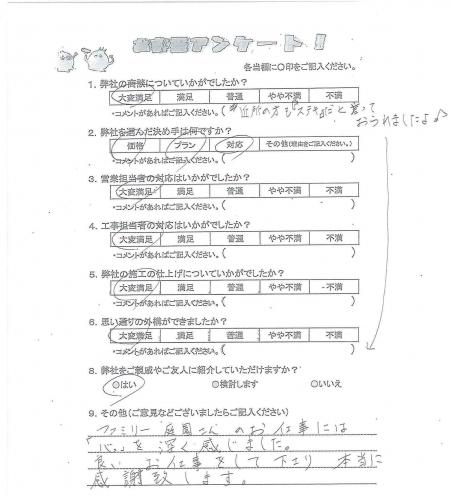 お客様アンケート！
各当欄に〇印をご記入ください。
1. 弊社の商談についていかがでしたか？
大変満足 満足 普通 やや不満 不満
・コメントがあればご記入ください。( 近所の方も"ステキ"だと言っておられましたよ♪
2. 弊社を選んだ決め手は何ですか？
価格 プラン 対応 その他(理由をご記入ください。)
・コメントがあればご記入ください。(
3. 営業担当者の対応はいかがでしたか？
大変満足 満足 普通 やや不満 不満
・コメントがあればご記入ください。(
4. 工事担当者の対応はいかがでしたか？
大変満足 満足 普通 やや不満 不満
・コメントがあればご記入ください。(
5. 弊社の施工の仕上げについていかがでしたか？
大変満足 満足 普通 やや不満 不満
・コメントがあればご記入ください。(
6. 思い通りの外構ができましたか？
大変満足 満足 普通 やや不満 不満
・コメントがあればご記入ください。(
8. 弊社をご親戚やご友人に紹介していただけますか？
〇はい 〇検討します 〇いいえ
9. その他(ご意見などございましたらご記入ください)
ファミリー庭園さんのお仕事には
"心"を深く感じました。
良いお仕事をして下さり 本当に
感謝致します。